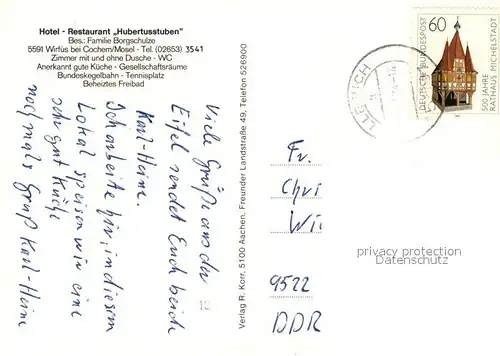 Hotel - Restaurant „Hubertusstuben"
Bes.: Familie Borgschulze
5591 Wirfüs bei Cochem/Mosel - Tel. (02653) 3541
Zimmer mit und ohne Dusche - WC
Anerkannt gute Küche - Gesellschaftsräume
Bundeskegelbahn - Tennisplatz
Beheiztes Freibad
Viele Grüße aus der
Eifel sendet Euch beide
Karl-Heine.
Ich arbeite hier, in diesem
Lokal speisen wir eine
sehr gute Küche
nochmals Gruß Karl-Heine
Verlag R. Korr, 5100 Aachen, Freunder Landsstraße 49, Telefon 526900
60
DEUTSCHE BUNDESPOST
500 JAHRE
RATHAUS MICHELSTADT
Fr.
Chri
Wi
9522
DDR
privacy protection
Datenschutz